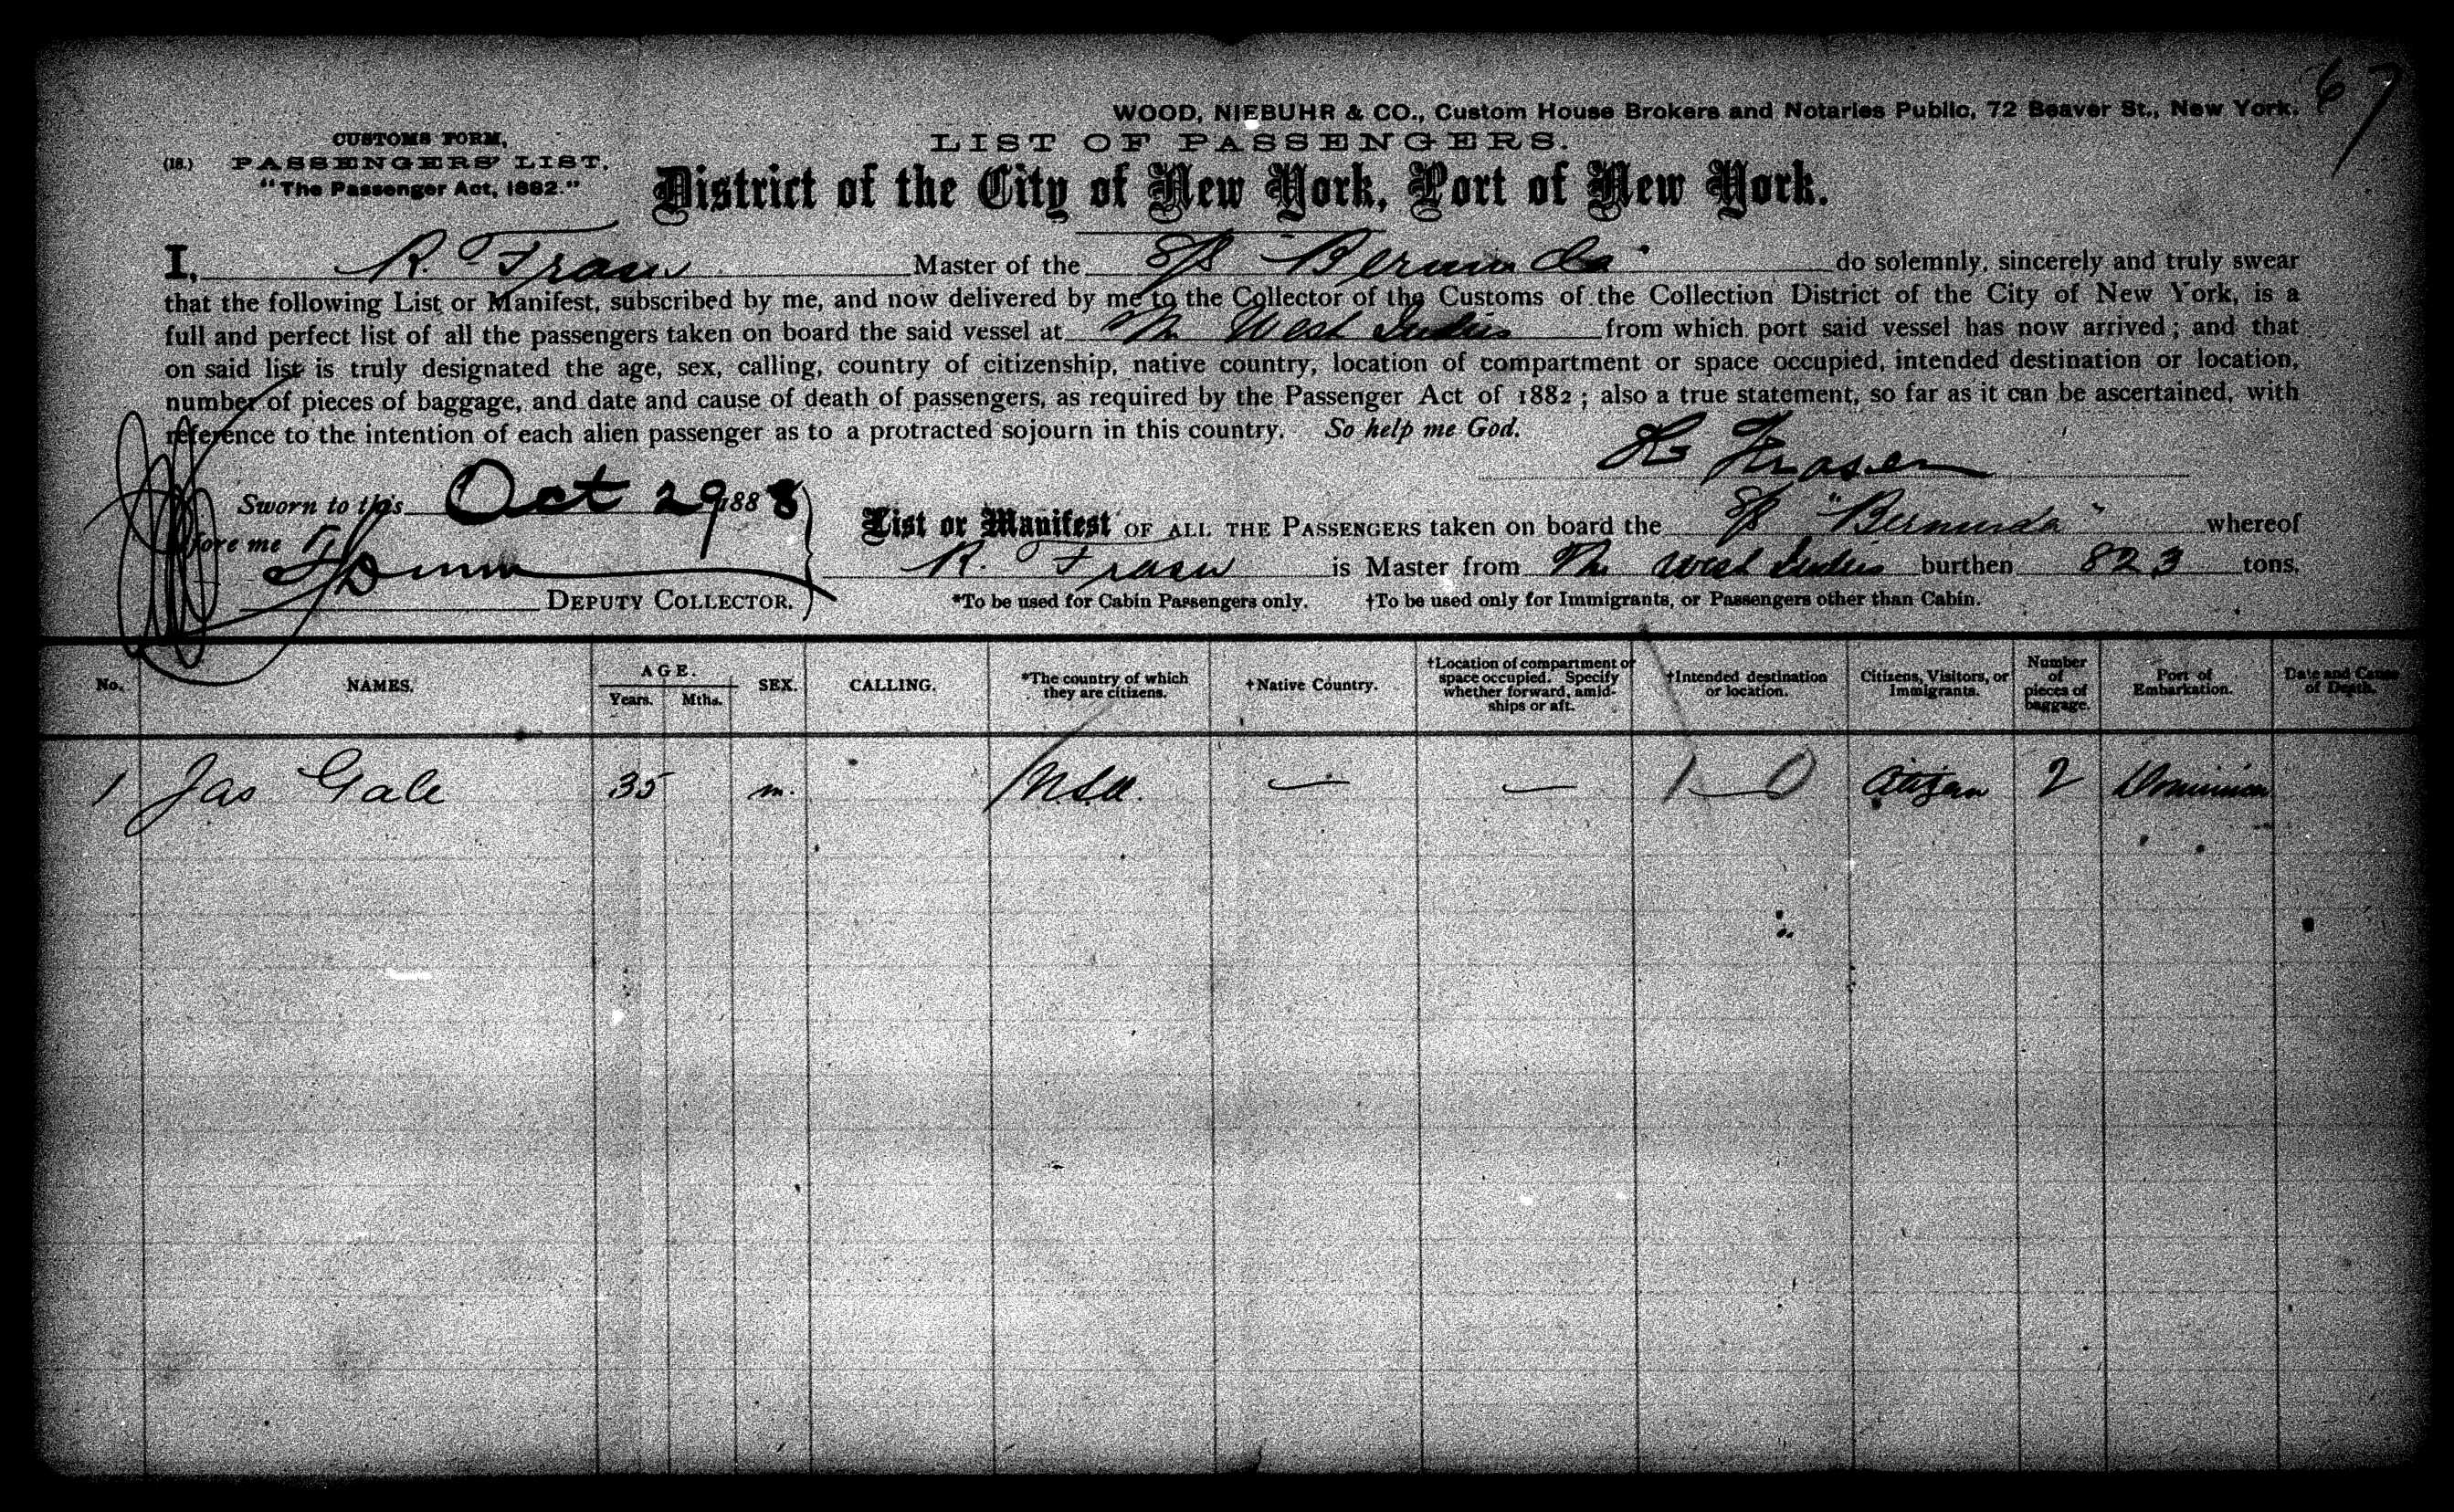 67
WOOD, NIEBUHR & CO., Custom House Brokers and Notaries Public, 72 Beaver St., New York.
CUSTOMS FORM,
LIST OF PASSENGERS.
(18.) PASSENGERS' LIST.
"The Passenger Act, 1882."
District of the City of New York, Port of New York.
I, R. Fraser Master of the S/S Bermuda do solemnly, sincerely and truly swear
that the following List or Manifest, subscribed by me, and now delivered by me to the Collector of the Customs of the Collection District of the City of New York, is a
full and perfect list of all the passengers taken on board the said vessel at The West Indies from which port said vessel has now arrived; and that
on said list is truly designated the age, sex, calling, country of citizenship, native country, location of compartment or space occupied, intended destination or location,
number of pieces of baggage, and date and cause of death of passengers, as required by the Passenger Act of 1882; also a true statement, so far as it can be ascertained, with
reference to the intention of each alien passenger as to a protracted sojourn in this country. So help me God.
R Fraser
Sworn to this Oct 29 1888
before me
DEPUTY COLLECTOR.
List or Manifest OF ALL THE PASSENGERS taken on board the S/S "Bermuda" whereof
R. Fraser is Master from The West Indies burthen 823 tons.
*To be used for Cabin Passengers only. †To be used only for Immigrants, or Passengers other than Cabin.
No. NAMES. AGE. Years. Mths. SEX. CALLING. *The country of which they are citizens. †Native Country. †Location of compartment or space occupied. Specify whether forward, amidships or aft. †Intended destination or location. Citizens, Visitors, or Immigrants. Number of pieces of baggage. Port of Embarkation. Date and Cause of Death.
1 Jas Gale 35 m. — — Citizen 2 Dominica